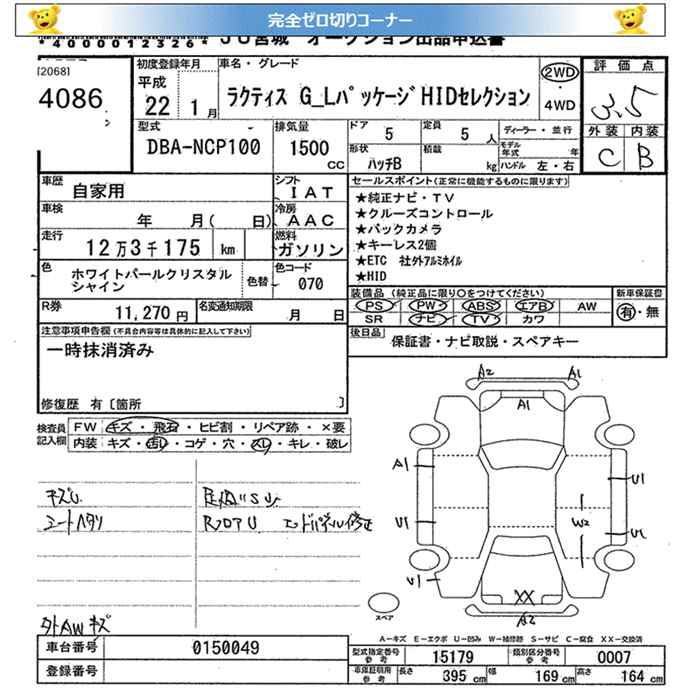 完全ゼロ切りコーナー
*4000012326* JU宮城 オークション出品申込書
[2068]
4086
初度登録年月
平成
22 1月
車名・グレード
ラクティス G_Lパッケージ HIDセレクション
2WD
・
4WD
評価点
3.5
外装 内装
C B
型式
DBA-NCP100
排気量
1500
CC
ドア
5
定員
5 人
ディーラー・並行
形状
ハッチB
積載
kg
モデル年式 年
ハンドル 左・右
車歴
自家用
シフト
IAT
車検
年 月( 日)
冷房
AAC
走行
12万3千175 km
燃料
ガソリン
色
ホワイトパールクリスタル
シャイン
色替
色コード
070
R券
11,270円
名変通知期限
月 日
セールスポイント(正常に機能するものに限ります)
★純正ナビ・TV
★クルーズコントロール
★バックカメラ
★キーレス2個
★ETC 社外アルミホイル
★HID
装備品(純正品に限り○をつけてください)
PS PW ABS エアB AW
SR ナビ TV カワ
新車保証書
有・無
後日品
保証書・ナビ取説・スペアキー
注意事項申告欄(不具合内容等は具体的に記入して下さい)
一時抹消済み
修復歴 有〔箇所 〕
検査員
記入欄
FW キズ・飛石・ヒビ割・リペア跡・×要
内装 キズ・汚レ・コゲ・穴・スレ・キレ・破レ
キズU
シートヘタリ
RフロアU エンドパネル修正
外AWキズ
A2 A1
A1
A1 U1
U1 W2 U1
U1
XX
A2
スペア
A-キズ E-エクボ U-凹み W-補修跡 S-サビ C-腐食 XX-交換済
車台番号
0150049
登録番号
型式指定番号
参考
15179
類別区分番号
参考
0007
車庫証明用
参考
長さ 395 cm
幅 169 cm
高さ 164 cm